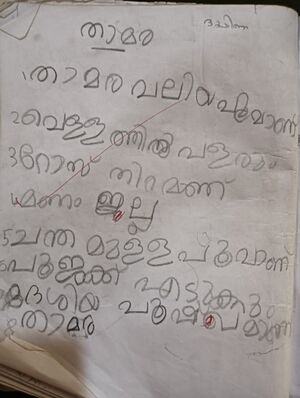 താമര
1 താമര വലിയ പൂവാണ്
2 വെള്ള ത്തിൽ വളരും
3 റോസ് നിറമണ്
4 മണം ഇല്ല
5 ചന്ത മുള്ള പൂവാണ്
6 പൂജക്ക് എടുക്കും
ദേശിയ പുഷ്പമാണ്
8 താമര